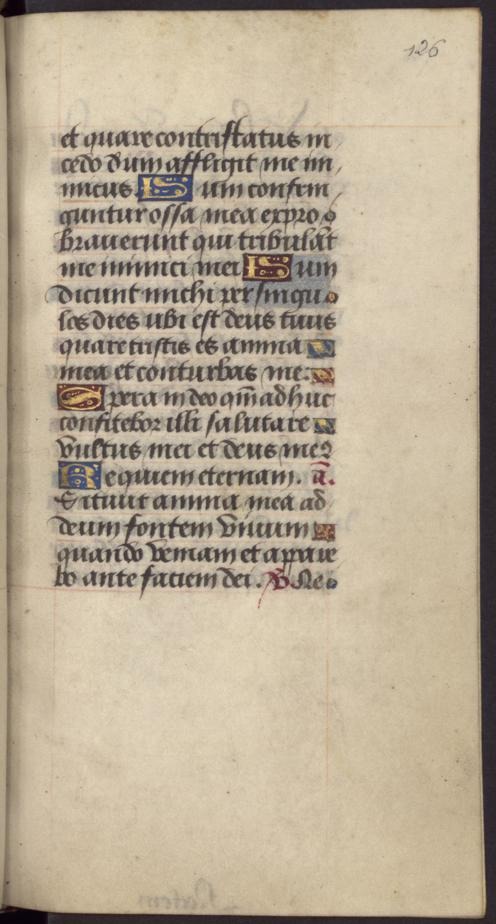 126
et quare contristatus in
cedo dum affligit me ini
micus Dum confrin
guntur ossa mea expro
braverunt qui tribulāt
me inimici mei Dum
dicunt michi per singu
los dies ubi est deus tuus
quare tristis es anima
mea et conturbas me:
Spera in deo qm̄ adhuc
confitebor illi salutare
vultus mei et deus me9
Requiem eternam. a.
Sitivit anima mea ad
deum fontem vivum
quando veniam et appare
bo ante faciem dei. V Ne